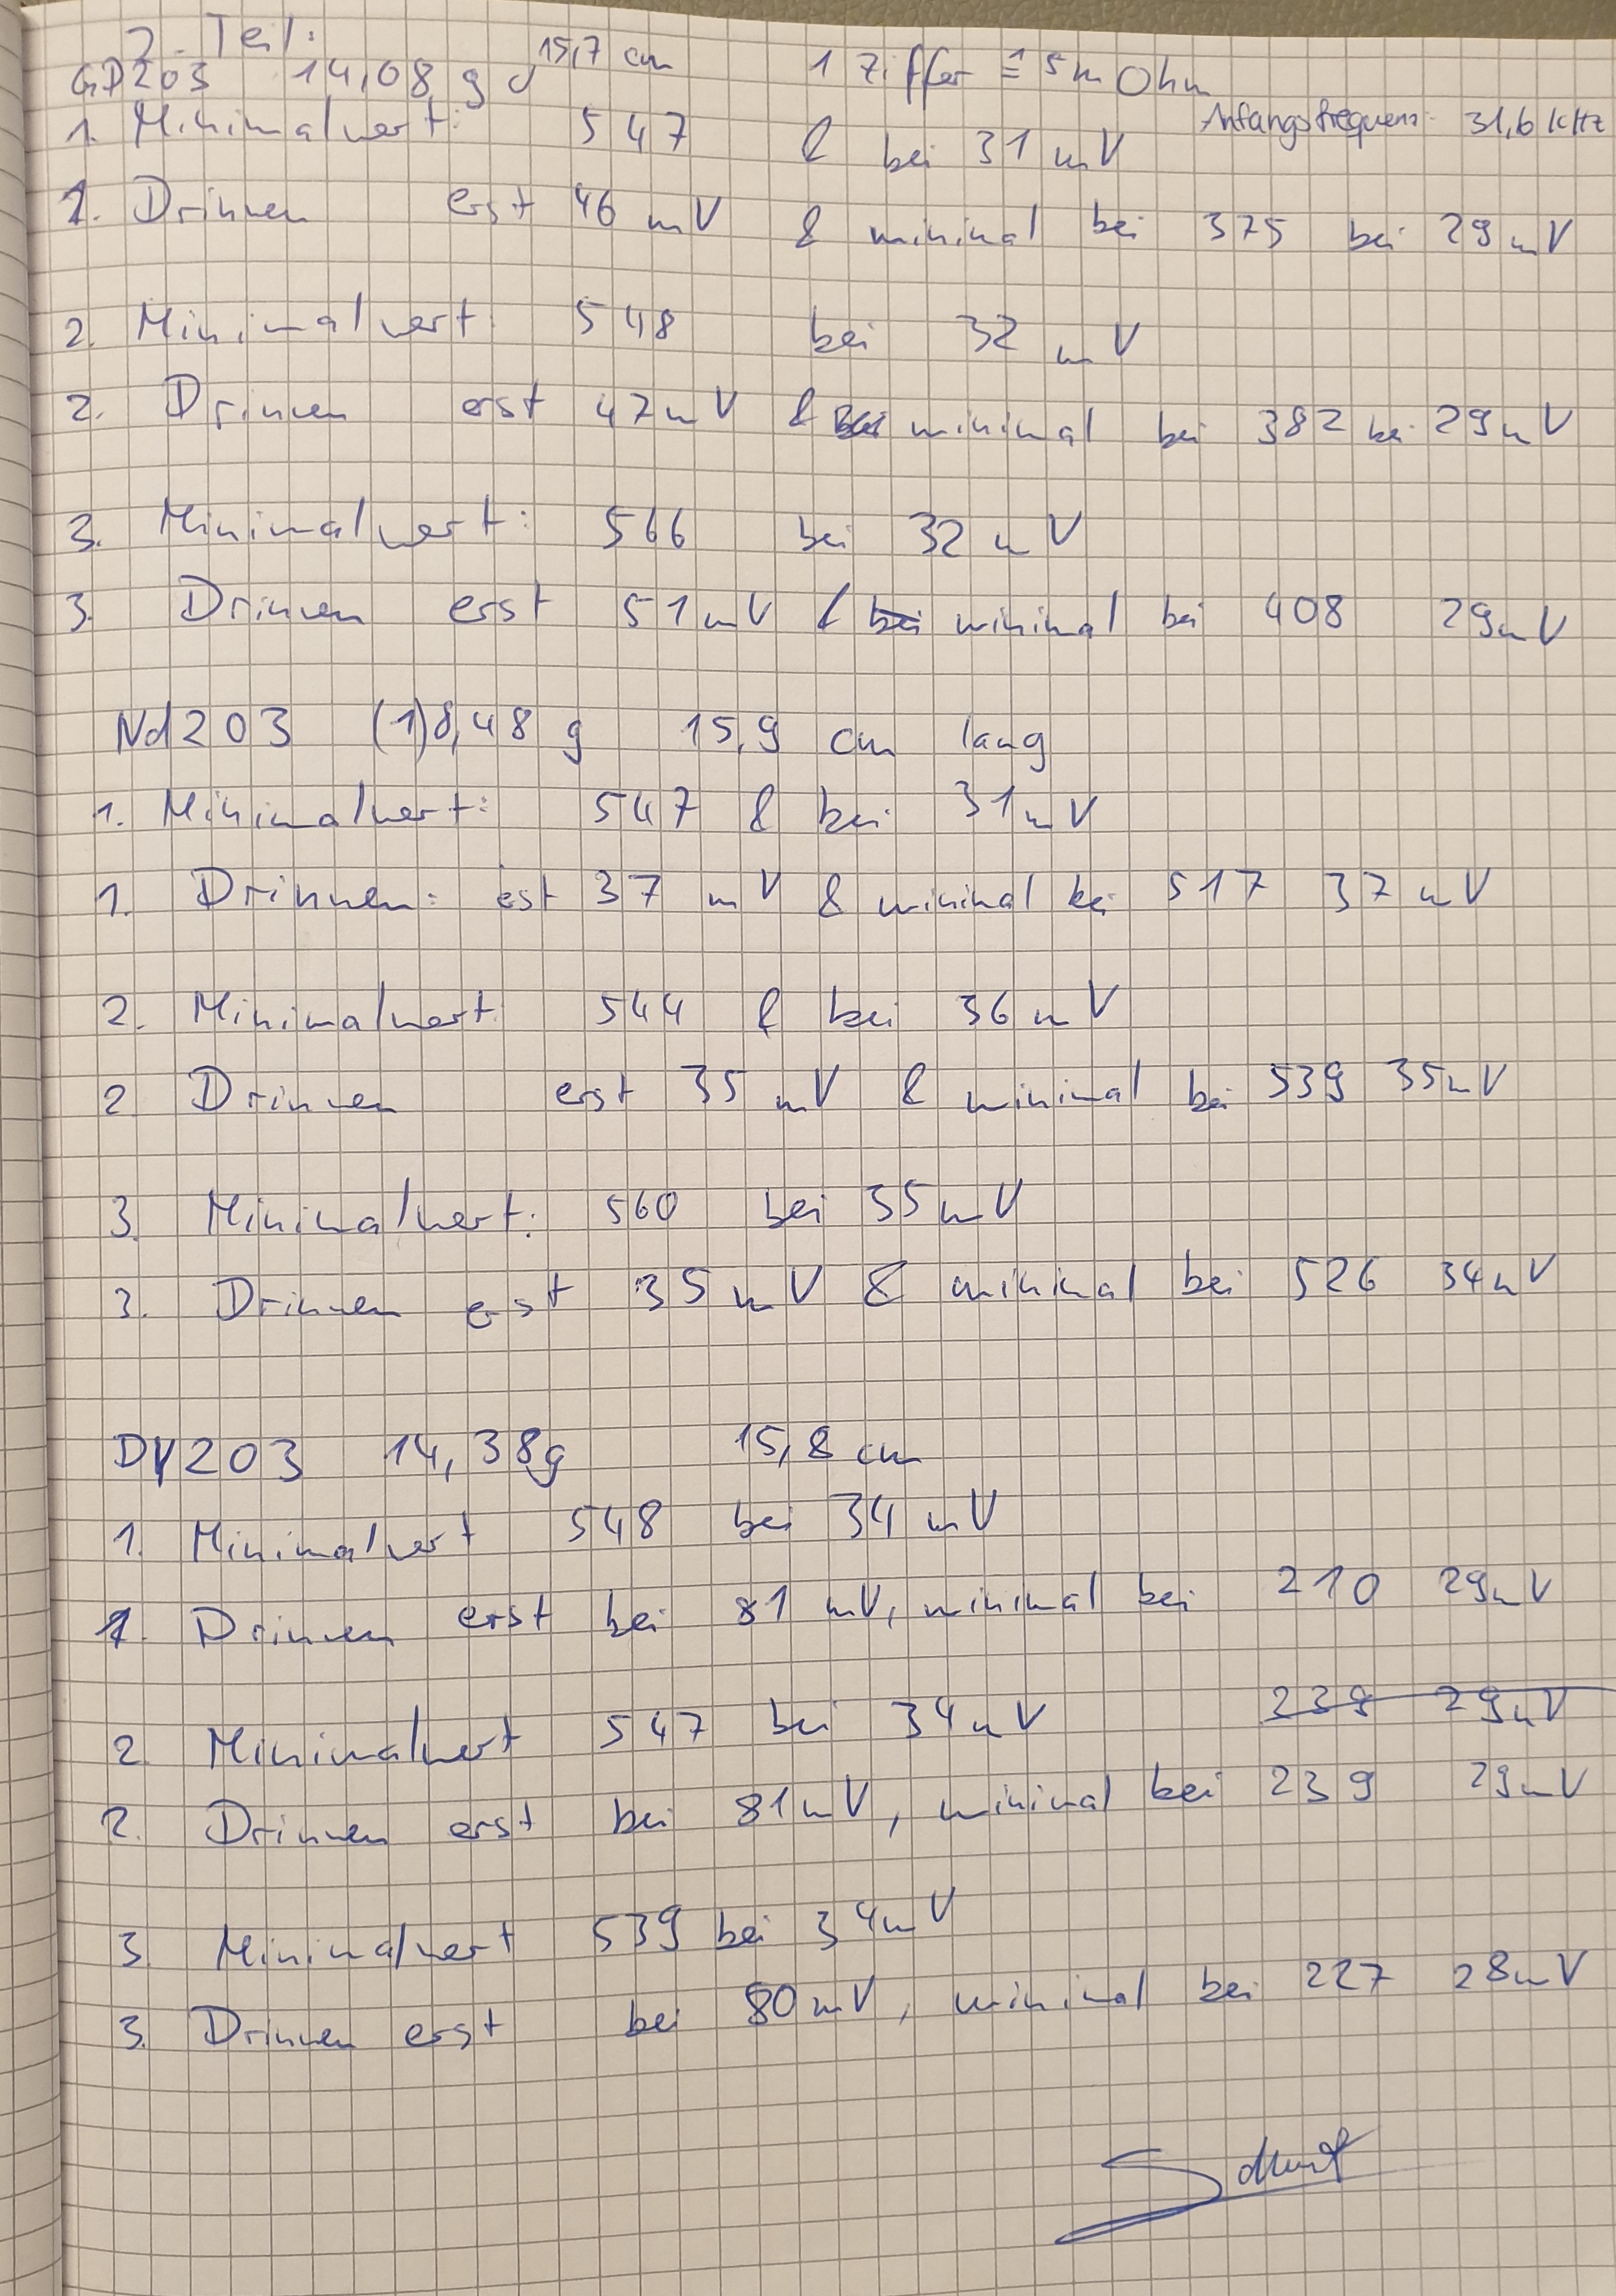 2. Teil:
GD203 14,08 g d 15,7 cm 1 Ziffer ≙ 5m Ohm
Anfangsfrequenz: 31,6 kHz
1. Minimalwert: 547 & bei 31 mV
1. Drinnen erst 46 mV & minimal bei 375 bei 29 mV
2. Minimalwert: 548 bei 32 mV
2. Drinnen erst 47mV & minimal bei 382 bei 29mV
3. Minimalwert: 566 bei 32 mV
3. Drinnen erst 51mV & bei minimal bei 408 29mV
Nd203 (1)8,48 g 15,9 cm lang
1. Minimalwert: 547 & bei 31mV
1. Drinnen: erst 37 mV & minimal bei 517 37 mV
2. Minimalwert: 544 & bei 36mV
2 Drinnen erst 35 mV & minimal bei 539 35mV
3. Minimalwert: 560 bei 35mV
3. Drinnen erst 35mV & minimal bei 526 34mV
DY203 14,38g 15,8 cm
1. Minimalwert 548 bei 34 mV
1. Drinnen erst bei 81 mV, minimal bei 210 29mV
239 29mV
2. Minimalwert 547 bei 34mV
2. Drinnen erst bei 81mV, minimal bei 239 29mV
3. Minimalwert 539 bei 34mV
3. Drinnen erst bei 80mV, minimal bei 227 28mV